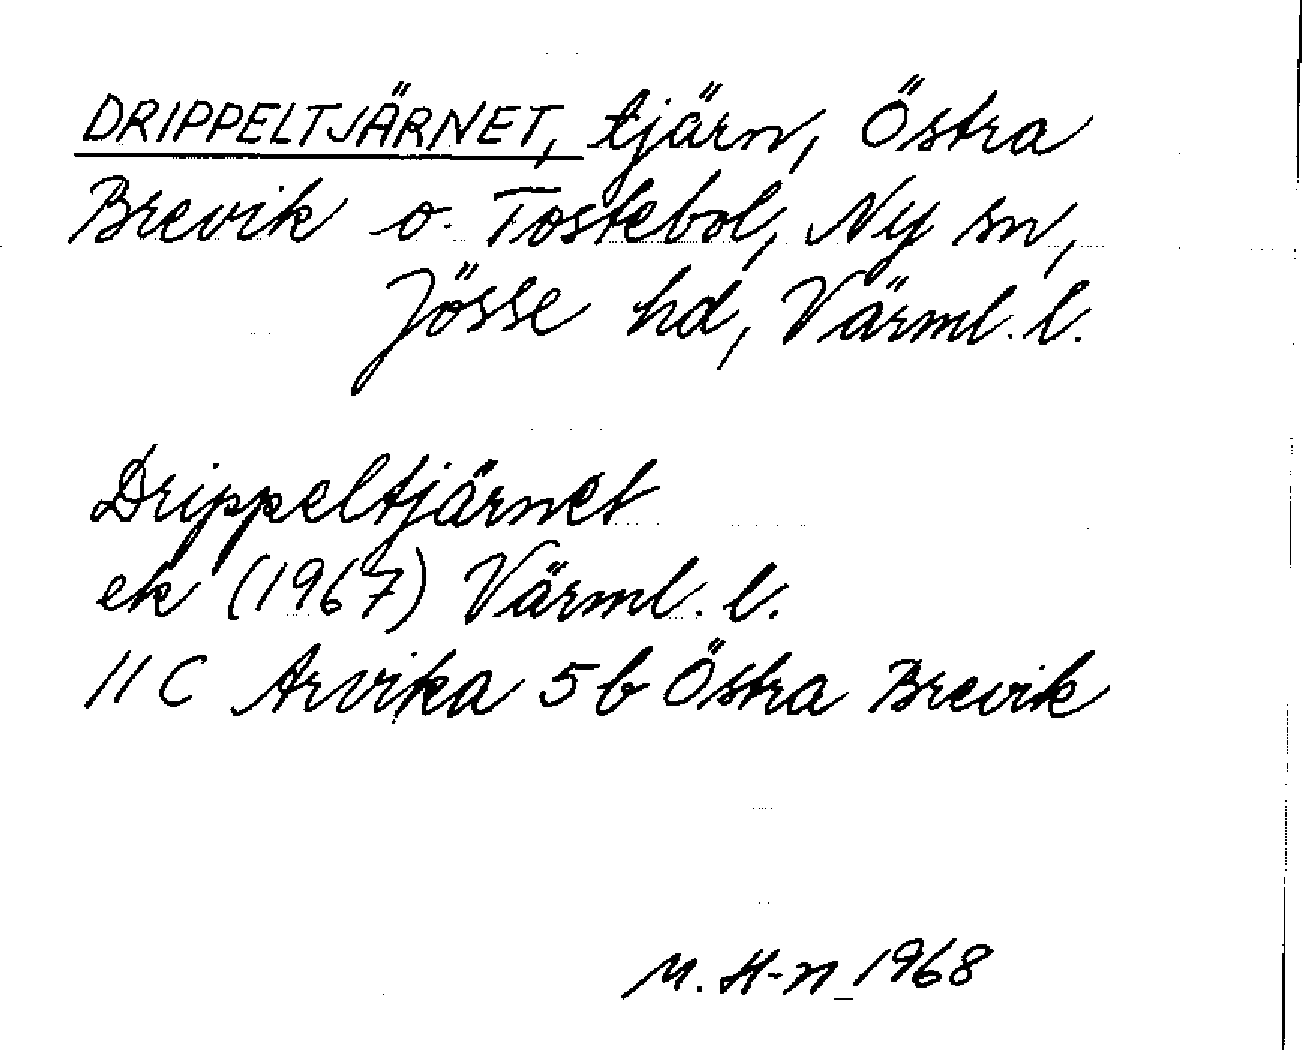 DRIPPELTJÄRNET, tjärn, Östra
Brevik o. Tostebol, Ny sn,
Jösse hd, Värml. l.
Drippeltjärnet
ek (1967) Värml. l.
11 C Arvika 5 b Östra Brevik
M. H-n 1968